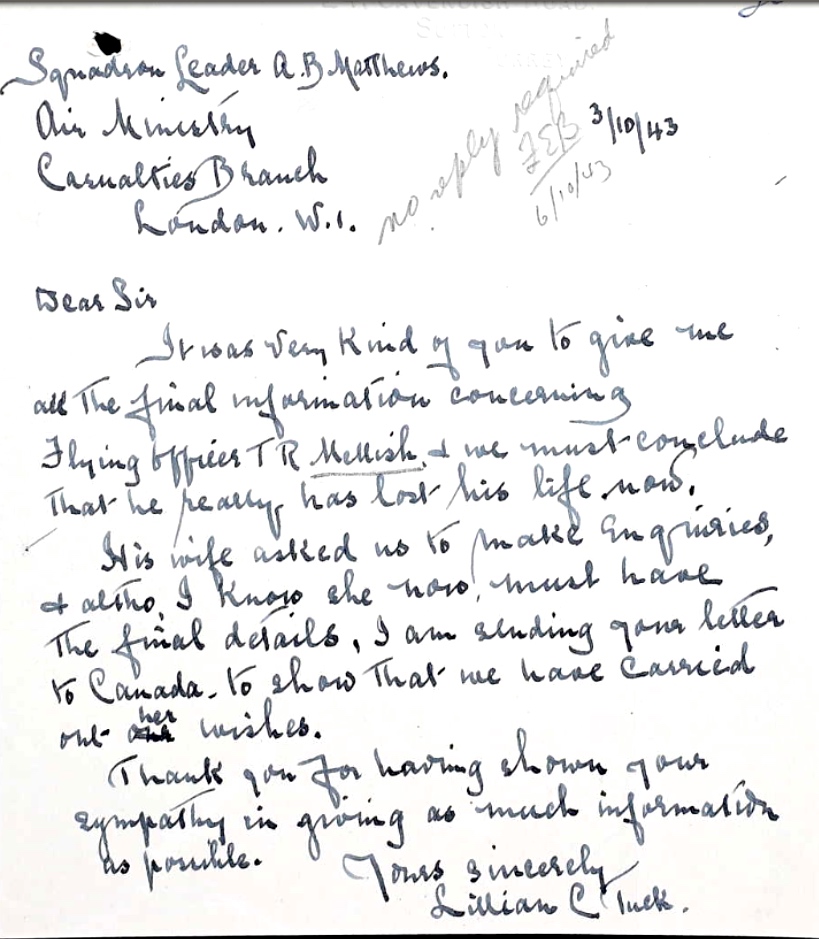 CAVENDISH ROAD.
SURREY
Squadron Leader A.B Matthews.
Air Ministry
Casualties Branch
London. W.1.
no reply required
3/10/43
6/10/43
Dear Sir
It was very kind of you to give me
all the final information concerning
Flying Officer T R Mellish, & we must conclude
that he really has lost his life now.
His wife asked us to make enquiries,
& altho, I know she now, must have
the final details, I am sending your letter
to Canada - to show that we have carried
out her wishes.
Thank you for having shown your
sympathy in giving as much information
as possible.
Yours sincerely
Lillian C Tuck.